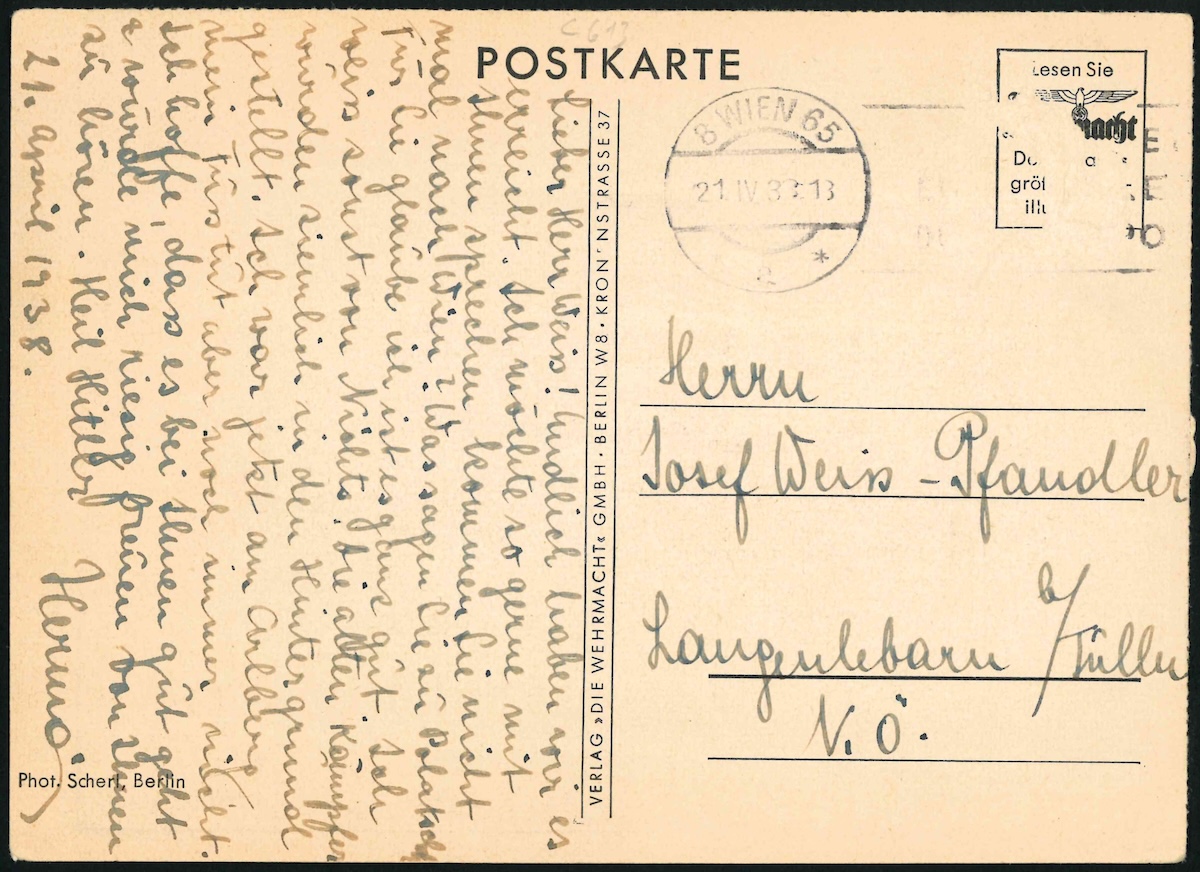 POSTKARTE
Lesen Sie
8 WIEN 65
21.IV.38.13
a
Lieber Herr Weiss! Endlich haben wir es
erreicht. Ich möchte so gerne mit
Ihnen sprechen kommen Sie nicht
mal nach Wien? Was sagen Sie zu
für Sie glaube ich ist es ganz gut. Ich
weis sonst von Nichts. Die alten Kämpfer
wurden ziemlich in den Hintergrund
gestellt. Ich war jetzt am Arlberg
mein Fus tut aber noch immer nicht.
Ich hoffe, dass es bei Ihnen gut geht
& würde mich riesig freuen von Ihnen
zu hören. Heil Hitler
21. April 1938.
VERLAG »DIE WEHRMACHT« GMBH · BERLIN W8 · KRON'NSTRASSE 37
Herrn
Josef Weiss - Pfandler
Langenlebarn b/Tulln
N.Ö.
Phot. Scherl, Berlin